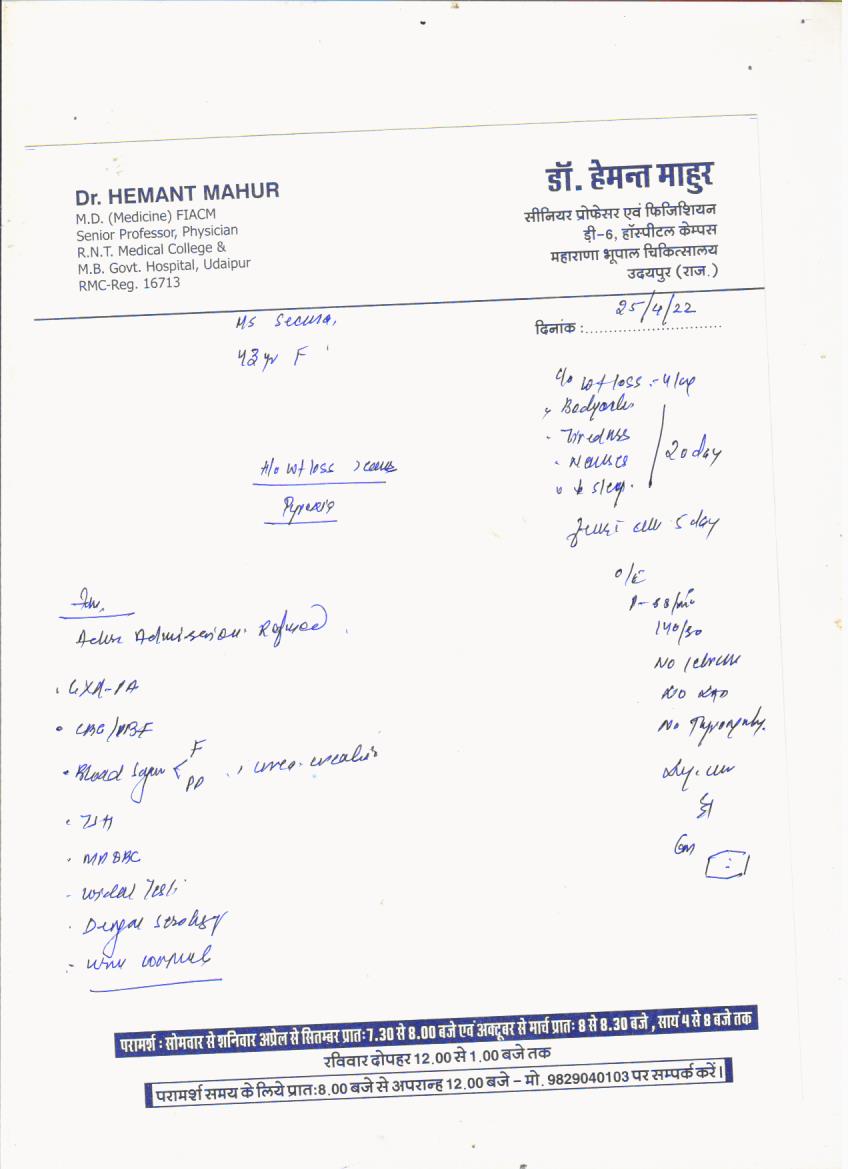 Dr. HEMANT MAHUR
M.D. (Medicine) FIACM
Senior Professor, Physician
R.N.T. Medical College &
M.B. Govt. Hospital, Udaipur
RMC-Reg. 16713
डॉ. हेमन्त माहुर
सीनियर प्रोफेसर एवं फिजिशियन
डी-6, हॉस्पीटल केम्पस
महाराणा भूपाल चिकित्सालय
उदयपुर (राज.)
दिनांक : 25/4/22
Ms
43 yr F
c/o wt loss :- 4 kg
Tiredness
Nausea
↓ sleep.
20 day
5 day
A/o wt loss ? cause
Pyrexia
O/E
P-88/min
140/90
No
No
No
Inv.
Admission Refused
• CXR-PA
• CBC/PBF
• Blood Sugar < F
PP , urea creatinine
• TSH
• MP
- widal Test
• Dengue serology
- urine complete
परामर्श : सोमवार से शनिवार अप्रेल से सितम्बर प्रातः7.30 से 8.00 बजे एवं अक्टूबर से मार्च प्रातः 8 से 8.30 बजे , सायं 4 से 8 बजे तक
रविवार दोपहर 12.00 से 1.00 बजे तक
परामर्श समय के लिये प्रातः8.00 बजे से अपरान्ह 12.00 बजे – मो. 9829040103 पर सम्पर्क करें।